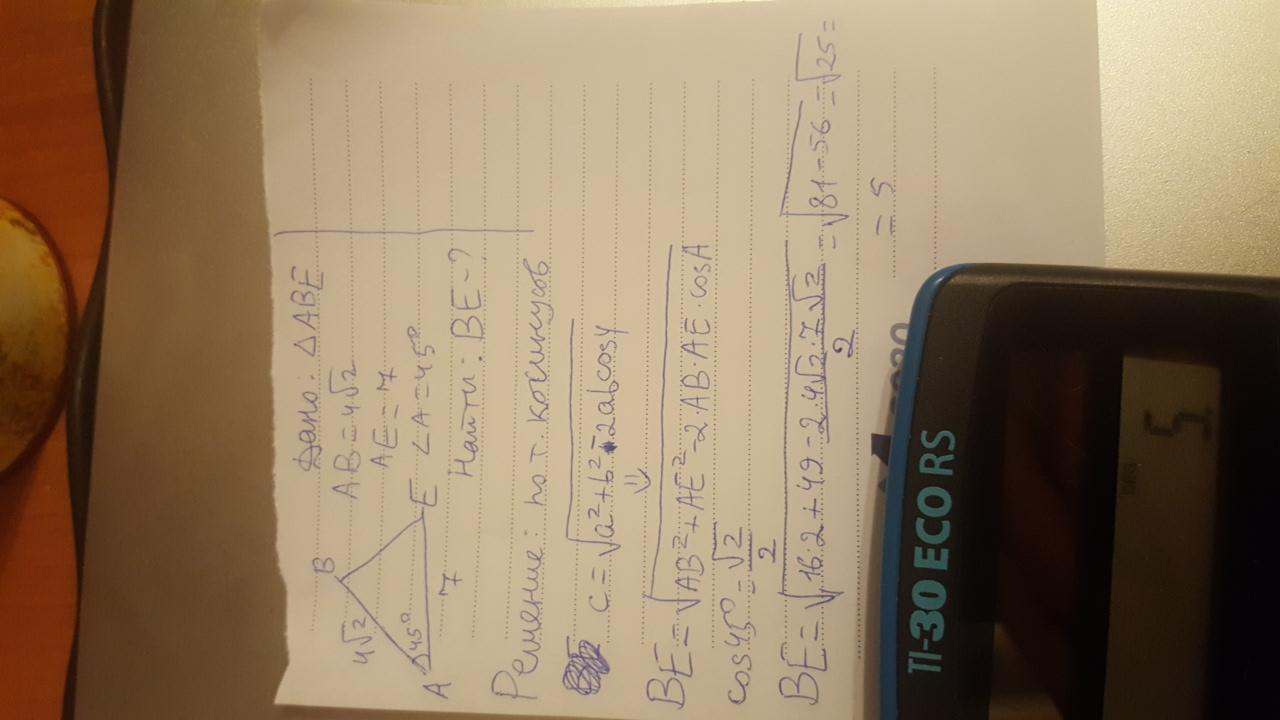 Дано: △ABE
AB = 4√2
AE = 7
∠A = 45°
Найти: BE - ?
B
4√2
45°
A
E
7
Решение: по т. косинусов
c = √a²+b²-2abcosγ
⇓
BE = √AB²+AE²-2·AB·AE·cosA
cos45° = √2/2
BE = √16·2+49-2·4√2·7√2/2 = √81-56 = √25 =
= 5
TI-30 ECO RS
5.